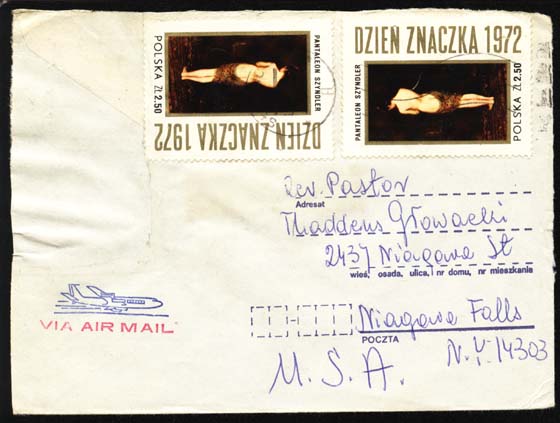 DZIEŃ ZNACZKA 1972
PANTALEON SZYNDLER
POLSKA ZŁ 2.50
DZIEŃ ZNACZKA 1972
PANTALEON SZYNDLER
POLSKA ZŁ 2.50
Rev. Pastor
Adresat
Thaddeus Głowacki
2437 Niagara St
wieś, osada, ulica, nr domu, nr mieszkania
VIA AIR MAIL
Niagara Falls
POCZTA
N.Y. 14303
U. S. A.